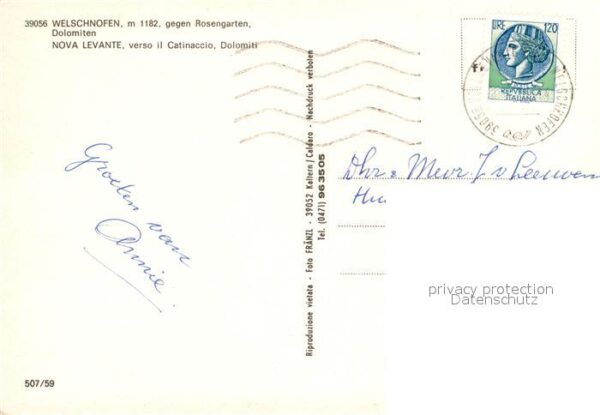 39056 WELSCHNOFEN, m 1182, gegen Rosengarten,
Dolomiten
NOVA LEVANTE, verso il Catinaccio, Dolomiti
LIRE 120
REPVBBLICA
ITALIANA
WELSCHNOFEN
Groeten van
Annie.
Riproduzione vietata - Foto FRÄNZL - 39052 Kaltern/Caldaro - Nachdruck verboten
Tel. (0471) 963505
Dhr & Mevr. J v Leeuwen
privacy protection
Datenschutz
507/59